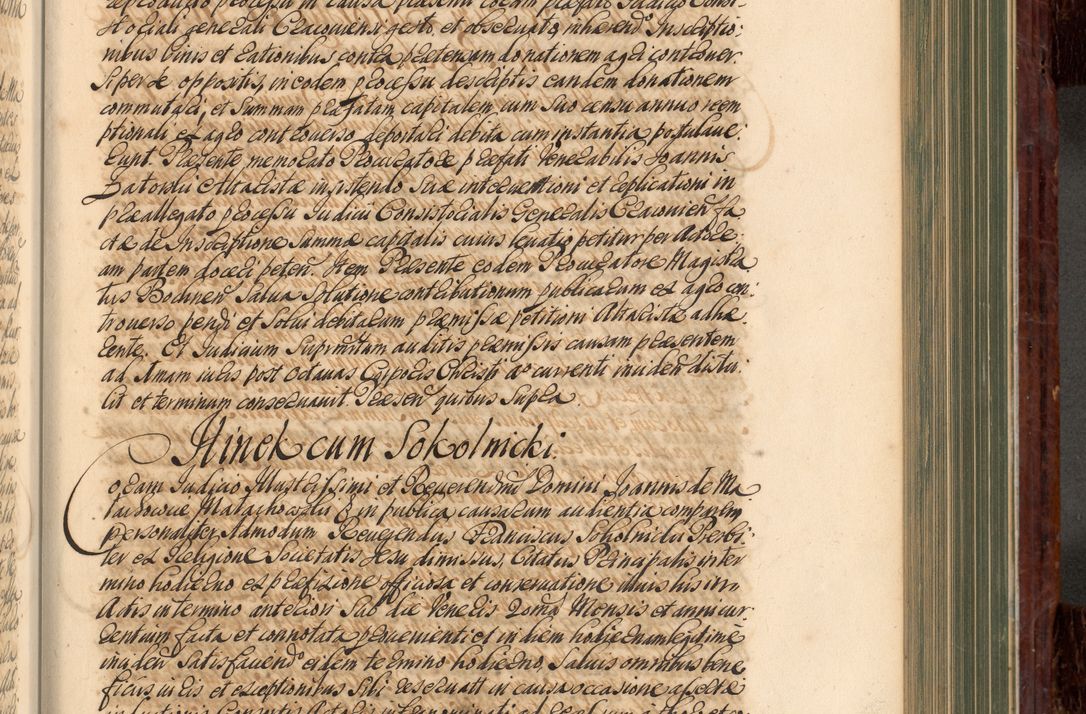 reproductio processu in causa præsenti coram præfato Judicio Consi
storiali generali Cracoviensi gesto, et observato, inhærendo Inscriptio
nibus binis et rationibus contra prætensam donationem ageo controver
siperæ oppositis, in eodem processu descriptis eandem donationem
commutari, et Summam præfatam capitalem, cum suo censu annuo reem
ptionali ex agro controverso deportari debita cum instantia postulave
runt. Præsente memorato Procuratore præfati Venerabilis Joannis
Zatorski Altaristæ insistendo suæ interventioni et replicationi in
præallegato processu Iudicii Consistorialis Generalis Cracovien fa
ctæ de Inscriptione Summæ capitalis cuius levatio petitur per Actore
am partem doceri peten. Item Præsente eodem Procuratore Magistra
tus Bochnen Salva Solutione contributionum publicarum ex agro con
troverso pendi et Solvi debitarum præmissæ petitioni Altaristæ adhæ
rente. Et Iudicium Suprmtum auditis præmissis causam præsentem
ad Imam iuris post Octavas Corporis Christi ao currenti iniden distu
lit et terminum conservavit Præsen quibus Supra
Hinek cum Sokolnicki.
Coram Iudicio Illustrissimi et Reverendmi Domini Joannis de Ma
lachowice Małachowski & in publica causarum audientia comparens
personaliter Admodum Reverendus Franciscus Sokolnicki Presbi
ter ex Religione Societatis Jesu dimissus, Citatus Principalis in ter
mino hodierno ex præfixione officiosa et conservatione iuris his in
Actis in termino anteriori Sub die Veneris 20ma Mensis et anni cur
rentium facta et connotata proveniente et in diem hodiernam legitime
iniden Satisfaciendo eidem termino hodierno, Salvis omnibus bene
ficiis iuris et exceptionibus Sibi reservatis in causa occasione assertæ